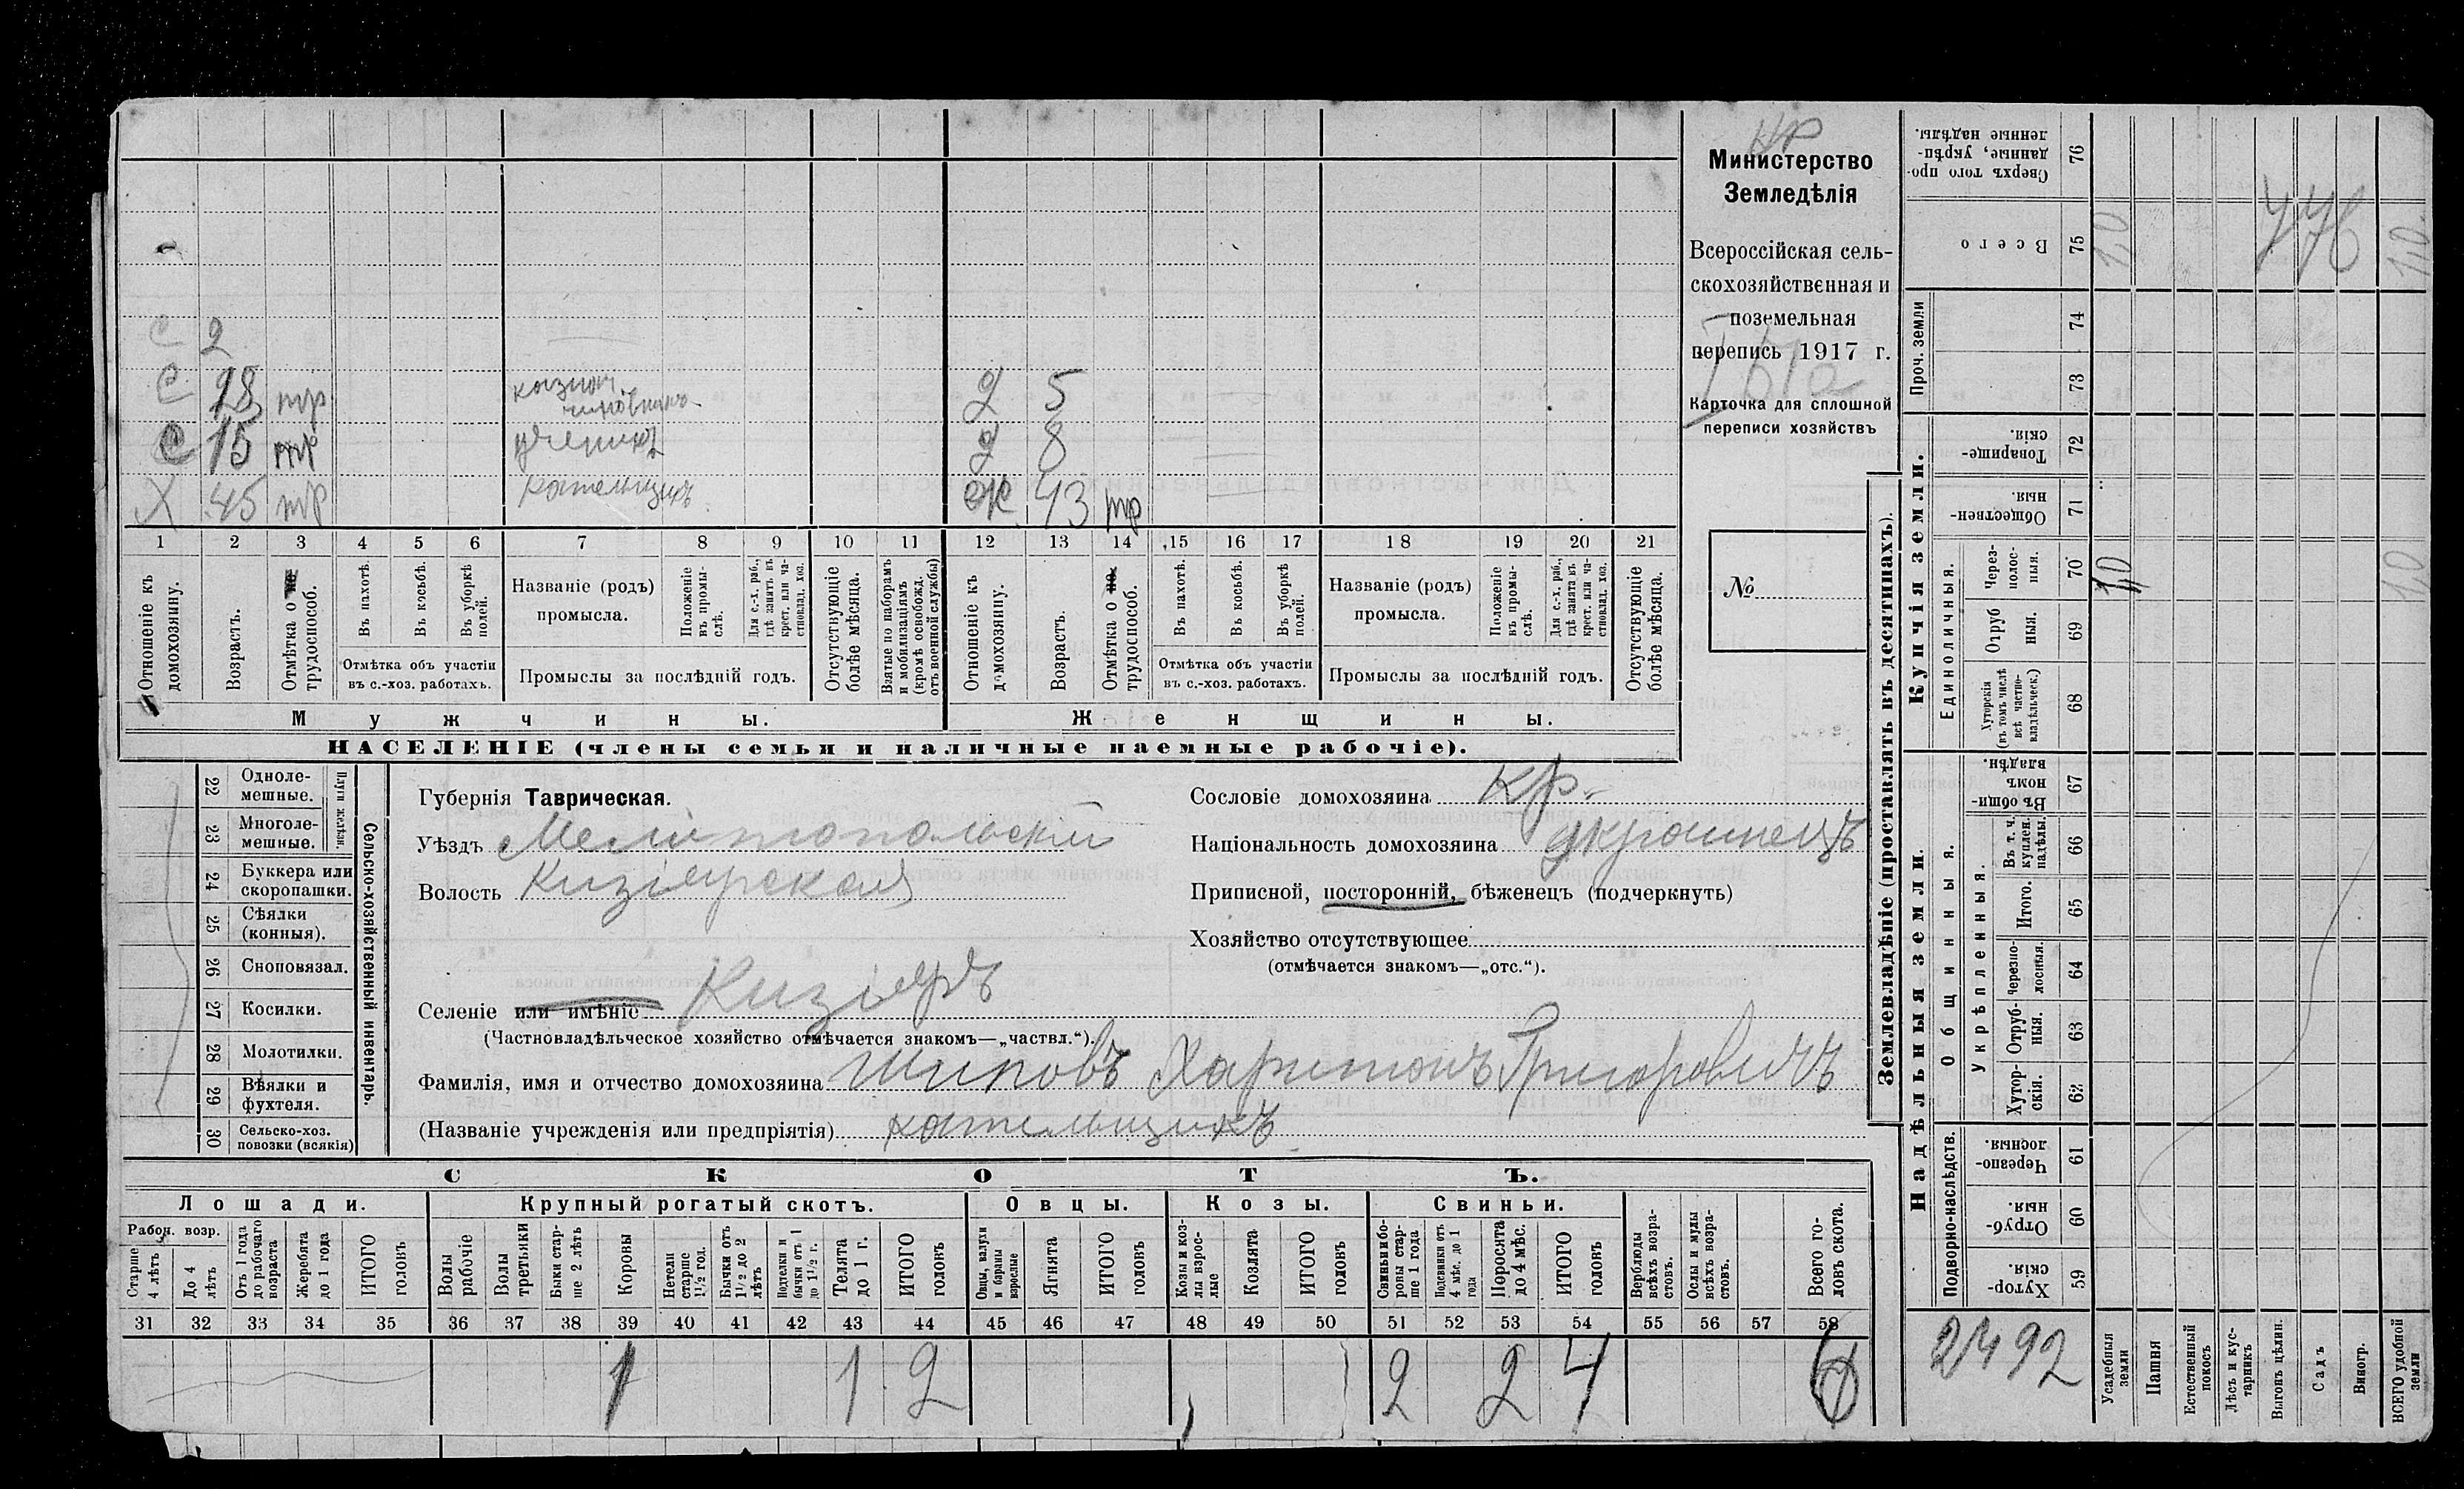 кр
Министерство
Земледѣлія
Всероссійская сель-
скохозяйственная и
поземельная
перепись 1917 г.
Карточка для сплошной
переписи хозяйствъ
№
С 2
С 28 тр чиновникъ д 5
С 15 тр ученикъ д 8
Х 45 тр кательщикъ ж 43 тр
1 2 3 4 5 6 7 8 9 10 11 12 13 14 15 16 17 18 19 20 21
Отношеніе къ домохозяину.
Возрастъ.
Отмѣтка о не трудоспособ.
Въ пахотѣ.
Въ косьбѣ.
Въ уборкѣ полей.
Отмѣтка объ участіи въ с.-хоз. работахъ.
Названіе (родъ) промысла.
Положеніе въ промы-слѣ.
Для с.-х. раб., гдѣ занятъ въ крест. или ча-стновлад. хоз.
Промыслы за послѣдній годъ.
Отсутствующіе болѣе мѣсяца.
Взятые по наборамъ и мобилизаціямъ (кромѣ освобожд. отъ военной службы)
Отношеніе къ домохозяину.
Возрастъ.
Отмѣтка о не трудоспособ.
Въ пахотѣ.
Въ косьбѣ.
Въ уборкѣ полей.
Отмѣтка объ участіи въ с.-хоз. работахъ.
Названіе (родъ) промысла.
Положеніе въ промы-слѣ.
Для с.-х. раб., гдѣ занята въ крест. или ча-стновлад. хоз.
Промыслы за послѣдній годъ.
Отсутствующіе болѣе мѣсяца.
Мужчины. Женщины.
НАСЕЛЕНІЕ (члены семьи и наличные наемные рабочіе).
22 Одноле-мешные.
23 Многоле-мешные.
Плуги желѣзн.
24 Буккера или скоропашки.
25 Сѣялки (конныя).
26 Сноповязал.
27 Косилки.
28 Молотилки.
29 Вѣялки и фухтеля.
30 Сельско-хоз. повозки (всякія)
Сельско-хозяйственный инвентарь.
Губернія Таврическая.
Уѣздъ Мелітопольскій
Волость Кизіярская
Селеніе или имѣніе Кизіяръ
(Частновладѣльческое хозяйство отмѣчается знакомъ—„частвл.“).
Фамилія, имя и отчество домохозяина Шиповъ Харитонъ Григоровичъ
(Названіе учрежденія или предпріятія) кательщикъ
Сословіе домохозяина кр.
Національность домохозяина украинецъ
Приписной, посторонній, бѣженецъ (подчеркнуть)
Хозяйство отсутствующее
(отмѣчается знакомъ—„отс.“).
СКОТЪ.
Лошади. Крупный рогатый скотъ. Овцы. Козы. Свиньи.
Рабоч. возр.
Старше 4 лѣтъ
До 4 лѣтъ
Отъ 1 года до рабочаго возраста
Жеребята до 1 года
ИТОГО головъ
Волы рабочіе
Волы третьяки
Быки стар-ше 2 лѣтъ
Коровы
Нетели старше 1½ год.
Бычки отъ 1½ до 2 лѣтъ
Подтелки и бычки отъ 1 до 1½ г.
Телята до 1 г.
ИТОГО головъ
Овцы, валухи и бараны взрослые
Ягнята
ИТОГО головъ
Козы и коз-лы взрос-лые
Козлята
ИТОГО головъ
Свиньи и бо-ровы стар-ше 1 года
Подсвинки отъ 4 мѣс. до 1 года
Поросята до 4 мѣс.
ИТОГО головъ
Верблюды всѣхъ возра-стовъ.
Ослы и мулы всѣхъ возра-стовъ.
Всего го-ловъ скота.
31 32 33 34 35 36 37 38 39 40 41 42 43 44 45 46 47 48 49 50 51 52 53 54 55 56 57 58
1 1 2 2 2 4 6
Землевладѣніе (проставлять въ десятинахъ).
Сверхъ того про-данные, укрѣп-ленные надѣлы. 76
Всего 75
Проч. земли 74 73
Купчія земли.
Товарище-скія. 72
Обществен-ныя. 71
Единоличныя.
Через-полос-ныя. 70
Отруб ныя. 69
Хуторскія (въ томъ числѣ всѣ частно-владѣльческ.) 68
Надѣльныя земли.
Общинныя.
Въ общи-номъ владѣн. 67
Укрѣпленныя.
Въ т. ч. куплен. надѣлы. 66
Итого. 65
Черезпо-лосныя. 64
Отруб-ныя. 63
Хутор-скія. 62
Подворно-наслѣдств.
Черезпо-лосныя. 61
Отруб-ныя. 60
Хутор-скія. 59
Усадебныя земли
Пашня
Естественный покосъ
Лѣсъ и кус-тарникъ
Выгонъ цѣлин.
Садъ
Виногр.
ВСЕГО удобной земли
1,0 1,0
1,0 1,0
2492